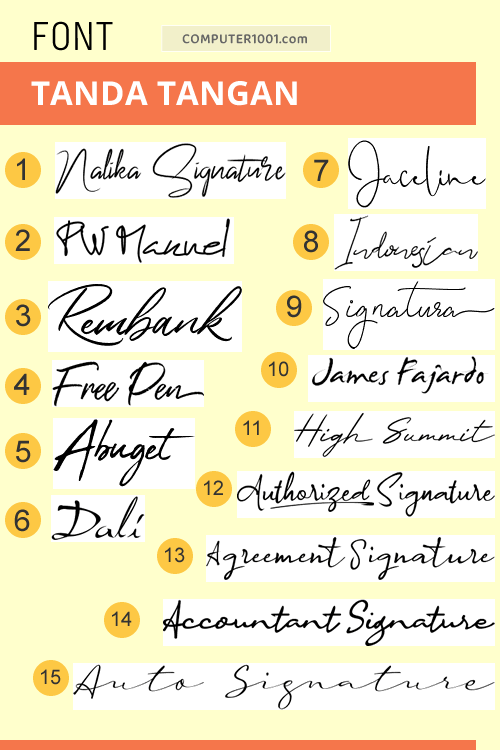 FONT
COMPUTER1001.com
TANDA TANGAN
1 Nalika Signature
2 PW Manuel
3 Rembank
4 Free Pen
5 Abuget
6 Dalí
7 Jaceline
8 Indonesian
9 Signatura
10 James Fajardo
11 High Summit
12 Authorized Signature
13 Agreement Signature
14 Accountant Signature
15 Auto Signature